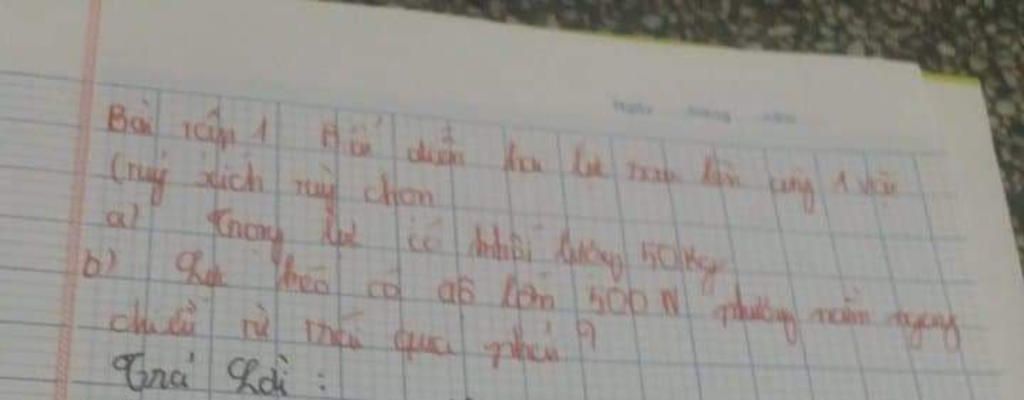 Bài tập 1 Biểu diễn các lực sau lên cùng 1 vật
(tuỳ xích tuỳ chọn
a) Trọng lực có khối lượng 50 kg
b) Lực kéo có độ lớn 500 N phương nằm ngang
chiều từ trái qua phải?
Trả Lời :